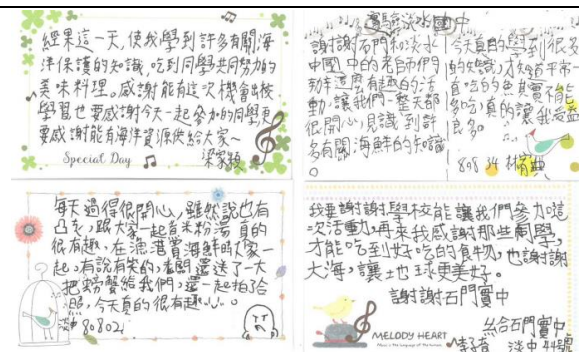 經果這一天,使我學到許多有關海
洋保護的知識,吃到同學共同努力的
美味料理。感謝能有這次機會出校
學習也要感謝今天一起參加的同學更
要感謝能有海洋資源供給大家~
Special Day
梁家穎
淡水國中
謝謝石門和淡水
國中的老師們
動,讓我們一整天都
很開心,見識到許
多有關海鮮的知識
。
今天真的學到很多
的知識,才知道平常一
直吃的魚其實不能
多吃,真的讓我受益
良多。
808 34 林
每天過得很開心,雖然說也有
凸,跟大家一起煮米粉湯真的
很有趣、在漁港賞海鮮時大家一
起有說有笑的,老闆還送了一大
把螃蟹給我們,還一起拍了合
照,今天真的很有趣
淡中80802
我要謝謝學校能讓我們參加這
次活動,再來我感謝那些同學,
才能吃到好吃的食物,也謝謝
大海,讓土也球更美好。
謝謝石門實中
MELODY HEART
給石門實中
淡中